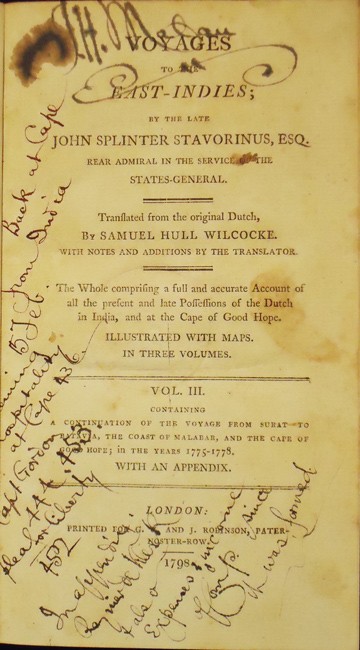 VOYAGES
TO THE
EAST-INDIES;
BY THE LATE
JOHN SPLINTER STAVORINUS, ESQ.
REAR ADMIRAL IN THE SERVICE OF THE
STATES-GENERAL.
Translated from the original Dutch,
By SAMUEL HULL WILCOCKE.
WITH NOTES AND ADDITIONS BY THE TRANSLATOR.
The Whole comprising a full and accurate Account of
all the present and late Possessions of the Dutch
in India, and at the Cape of Good Hope.
ILLUSTRATED WITH MAPS.
IN THREE VOLUMES.
VOL. III.
CONTAINING
A CONTINUATION OF THE VOYAGE FROM SURAT TO
BATAVIA, THE COAST OF MALABAR, AND THE CAPE OF
GOOD HOPE; IN THE YEARS 1775-1778.
WITH AN APPENDIX.
LONDON:
PRINTED FOR G. AND J. ROBINSON, PATER-
NOSTER-ROW.
1798
Back at Cape
from India
57 Feb.
hospitality
at Cape 436
Capt Gordon
444, 453
for Liberty
452
In appendix
also
Expenses
Comp. since
it was formed